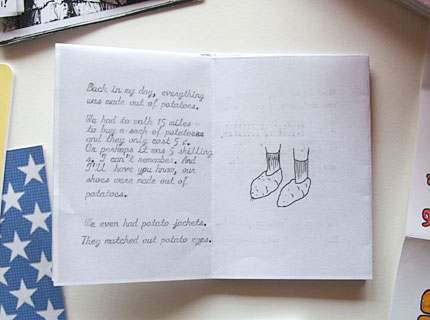 Back in my day, everything
was made out of potatoes.
We had to walk 15 miles
to buy a sack of potatoes
and they only cost 5 c.
Or perhaps it was 5 shilling
s, I can't remember. And
I'll have you know, our
shoes were made out of
potatoes.
We even had potato jackets.
They matched out potato eyes.